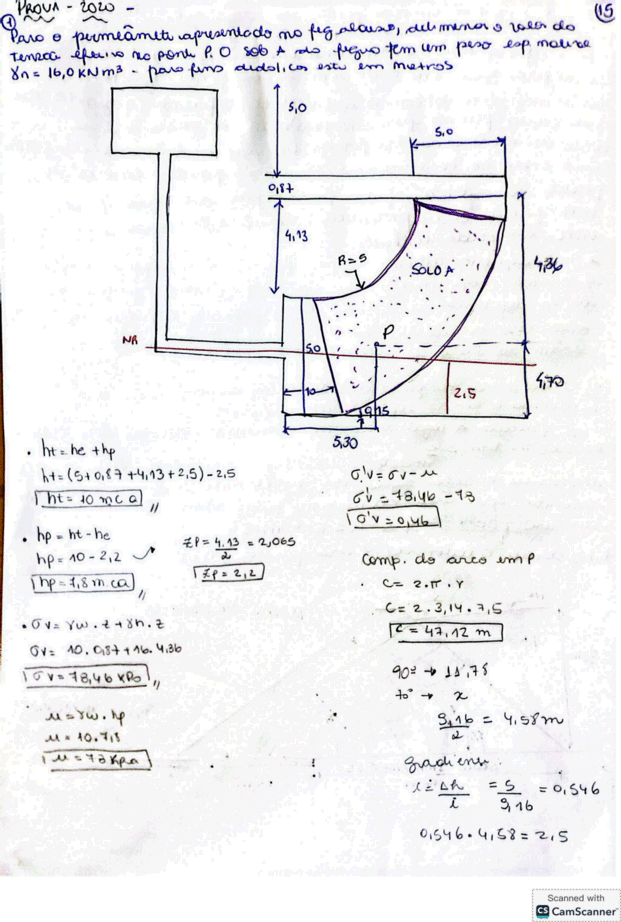 PROVA - 2020 -
15
1
Para o permeâmetro apresentado no fig abaixo, determinar o valor da
tensão efetiva no ponto P. O solo A da figura tem um peso esp natural
γn = 16,0 kN/m³ - para fins didáticos está em metros
5,0
5,0
0,87
4,13
R=5
SOLO A
4,36
P
NR
5,0
10
2,5
4,70
0,15
5,30
• ht = he + hp
ht = (5+0,87+4,13+2,5)-2,5
ht = 10 mca
• hp = ht - he
hp = 10 - 2,2
hp = 7,8 mca
ZP = 4,13/2 = 2,065
ZP = 2,2
• σv = γw . z + γn . z
σv = 10. 0,87 + 16. 4,36
σv = 78,46 kPa
u = γw . hp
u = 10.7,8
u = 78 kPa
σ'v = σv - u
σ'v = 78,46 - 78
σ'v = 0,46
Comp. do arco em P
C = 2.π.r
C = 2.3,14.7,5
C = 47,12 m
90º → 11,78
70º → x
9,16/2 = 4,58m
gradiente
i = Δh/l = 5/9,16 = 0,546
0,546 . 4,58 = 2,5
Scanned with
CS CamScanner